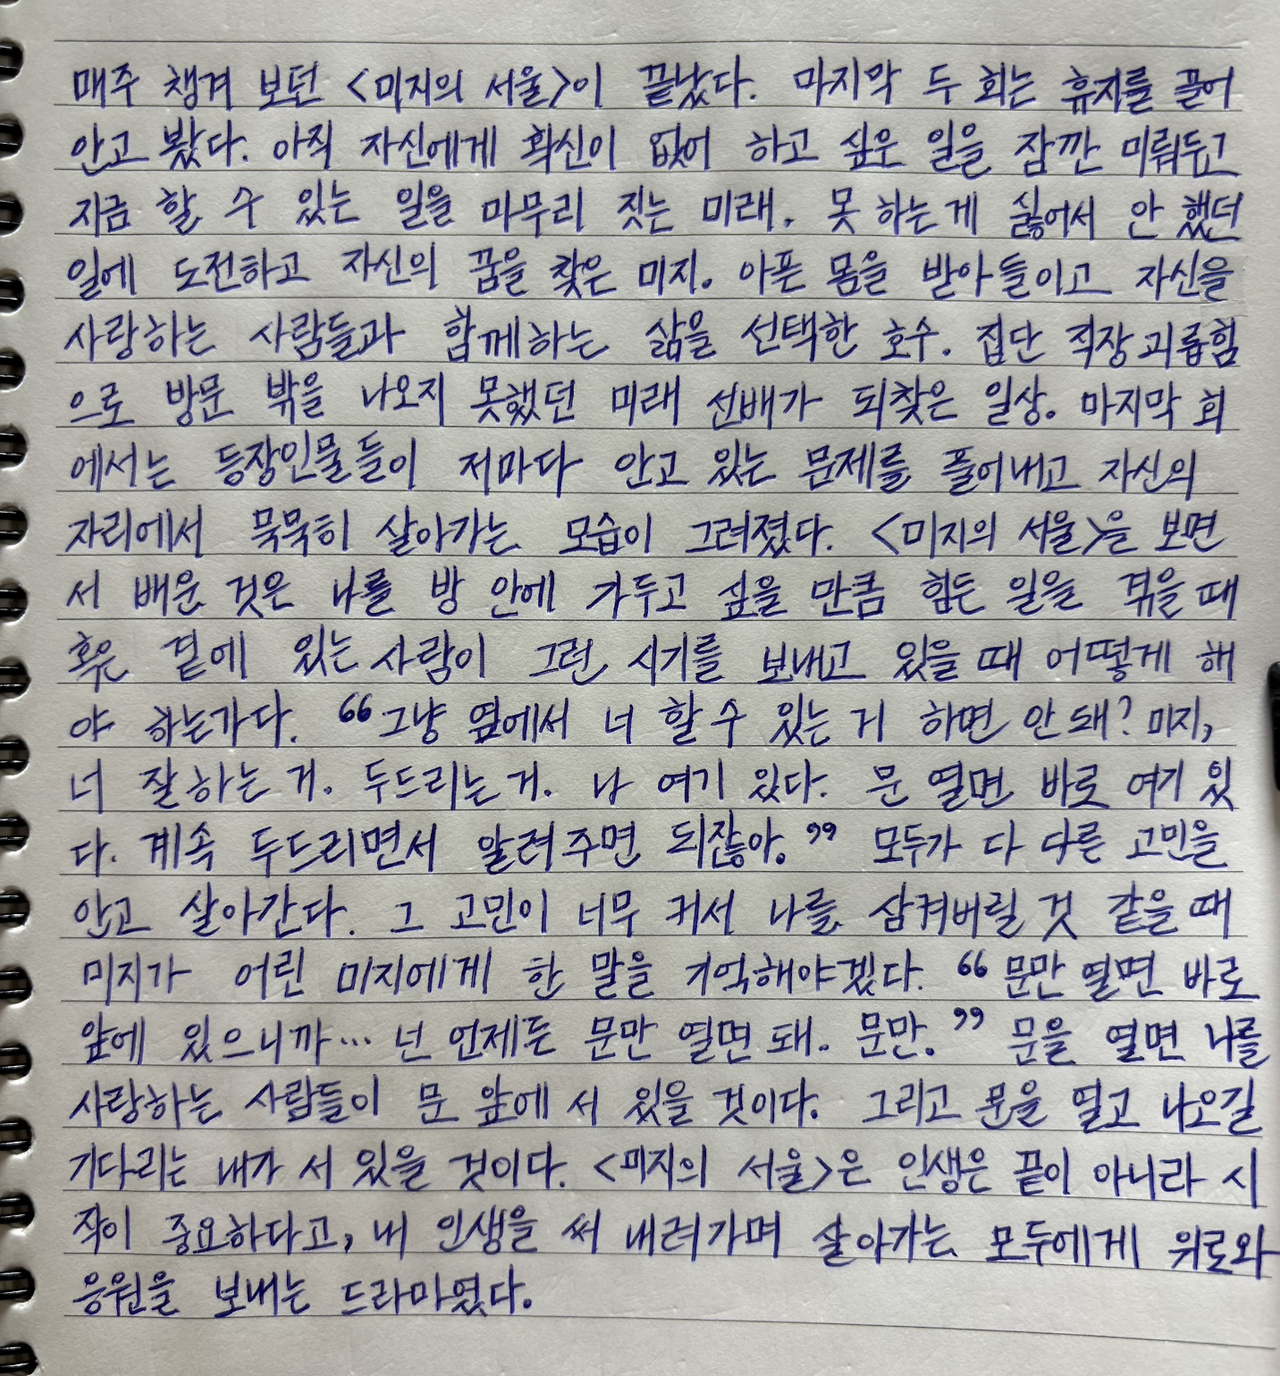 매주 챙겨 보던 <미지의 서울>이 끝났다. 마지막 두 회는 휴지를 끌어
안고 봤다. 아직 자신에게 확신이 없어 하고 싶은 일을 잠깐 미뤄두고
지금 할 수 있는 일을 마무리 짓는 미래. 못 하는게 싫어서 안 했던
일에 도전하고 자신의 꿈을 찾은 미지. 아픈 몸을 받아들이고 자신을
사랑하는 사람들과 함께하는 삶을 선택한 호수. 집단 직장괴롭힘
으로 방문 밖을 나오지 못했던 미래 선배가 되찾은 일상. 마지막 회
에서는 등장인물들이 저마다 안고 있는 문제를 풀어내고 자신의
자리에서 묵묵히 살아가는 모습이 그려졌다. <미지의 서울>을 보면
서 배운 것은 나를 방 안에 가두고 싶을 만큼 힘든 일을 겪을 때
혹은 곁에 있는 사람이 그런 시기를 보내고 있을 때 어떻게 해
야 하는가다. “그냥 옆에서 너 할 수 있는 거 하면 안 돼? 미지,
너 잘하는 거. 두드리는 거. 나 여기 있다. 문 열면 바로 여기 있
다. 계속 두드리면서 알려주면 되잖아.” 모두가 다 다른 고민을
안고 살아간다. 그 고민이 너무 커서 나를 삼켜버릴 것 같을 때
미지가 어린 미지에게 한 말을 기억해야겠다. “문만 열면 바로
앞에 있으니까… 넌 언제든 문만 열면 돼. 문만.” 문을 열면 나를
사랑하는 사람들이 문 앞에 서 있을 것이다. 그리고 문을 열고 나오길
기다리는 내가 서 있을 것이다. <미지의 서울>은 인생은 끝이 아니라 시
작이 중요하다고, 내 인생을 써 내려가며 살아가는 모두에게 위로와
응원을 보내는 드라마였다.